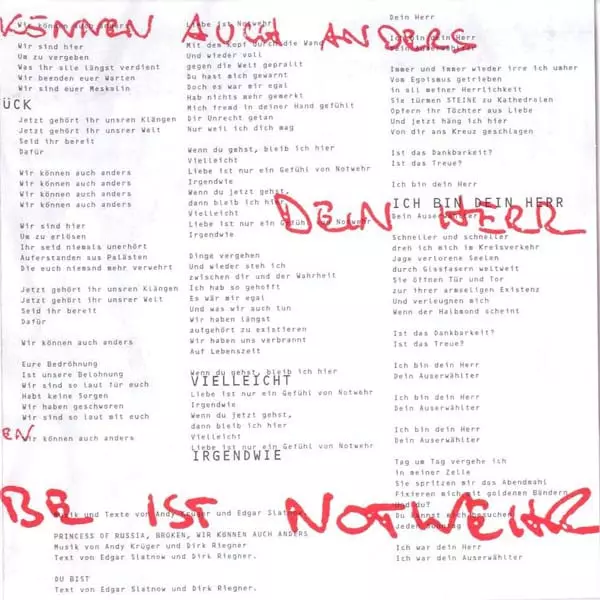 KÖNNEN AUCH ANDERS
Wir können auch anders
Wir sind hier
Um zu vergeben
Was ihr alle längst verdient
Wir beenden euer Warten
Wir sind euer Meskalin
ÜCK
Jetzt gehört ihr unsren Klängen
Jetzt gehört ihr unsrer Welt
Seid ihr bereit
Dafür
Wir können auch anders
Wir können auch anders
Wir können auch anders
Wir können auch anders
Wir sind hier
Um zu erlösen
Ihr seid niemals unerhört
Auferstanden aus Palästen
Die euch niemand mehr verwehrt
Jetzt gehört ihr unsren Klängen
Jetzt gehört ihr unsrer Welt
Seid ihr bereit
Dafür
Wir können auch anders
Eure Bedröhnung
Ist unsere Belohnung
Wir sind so laut für euch
Habt keine Sorgen
Wir haben geschworen
Wir sind so laut mit euch
EN
Wir können auch anders
Liebe ist Notwehr
Mit dem Kopf durch die Wand
Und wieder voll
gegen die Welt geprallt
Du hast mich gewarnt
Doch es war mir egal
Hab nichts mehr gemerkt
Mich fremd in deiner Hand gefühlt
Dir Unrecht getan
Nur weil ich dich mag
Wenn du gehst, bleib ich hier
Vielleicht
Liebe ist nur ein Gefühl von Notwehr
Irgendwie
Wenn du jetzt gehst,
dann bleib ich hier
Vielleicht
Liebe ist nur ein Gefühl von Notwehr
Irgendwie
Dinge vergehen
Und wieder steh ich
zwischen dir und der Wahrheit
Ich hab so gehofft
Es wär mir egal
Und was wir auch tun
Wir haben längst
aufgehört zu existieren
Wir haben uns verbrannt
Auf Lebenszeit
Wenn du gehst, bleib ich hier
VIELLEICHT
Liebe ist nur ein Gefühl von Notwehr
Irgendwie
Wenn du jetzt gehst,
dann bleib ich hier
Vielleicht
Liebe ist nur ein Gefühl von Notwehr
IRGENDWIE
Dein Herr
Ich bin dein Herr
Dein Auserwählter
Immer und immer wieder irre ich umher
Vom Egoismus getrieben
in all meiner Herrlichkeit
Sie türmen STEINE zu Kathedralen
Opfern ihr Töchter aus Liebe
Und jetzt häng ich hier
Von dir ans Kreuz geschlagen
Ist das Dankbarkeit?
Ist das Treue?
Ich bin dein Herr
ICH BIN DEIN HERR
DEIN HERR
Dein Auserwählter
Schneller und schneller
dreh ich mich im Kreisverkehr
Jage verlorene Seelen
durch Glasfasern weltweit
Sie öffnen Tür und Tor
zur ihrer armseligen Existenz
Und verleugnen mich
Wenn der Halbmond scheint
Ist das Dankbarkeit?
Ist das Treue?
Ich bin dein Herr
Dein Auserwählter
Ich bin dein Herr
Dein Auserwählter
Ich bin dein Herr
Dein Auserwählter
Tag um Tag vergehe ich
in meiner Zelle
Sie spritzen mir das Abendmahl
Fixieren mich mit goldenen Bändern
Und du?
Du kannst mich besuchen
Jeden Sonntag
Ich war dein Herr
Ich war dein Auserwählter
BE IST NOTWEHR
Musik und Texte von Andy Krüger und Edgar Slatnow.
PRINCESS OF RUSSIA, BROKEN, WIR KÖNNEN AUCH ANDERS
Musik von Andy Krüger und Dirk Riegner.
Text von Edgar Slatnow und Dirk Riegner.
DU BIST
Text von Edgar Slatnow und Dirk Riegner.